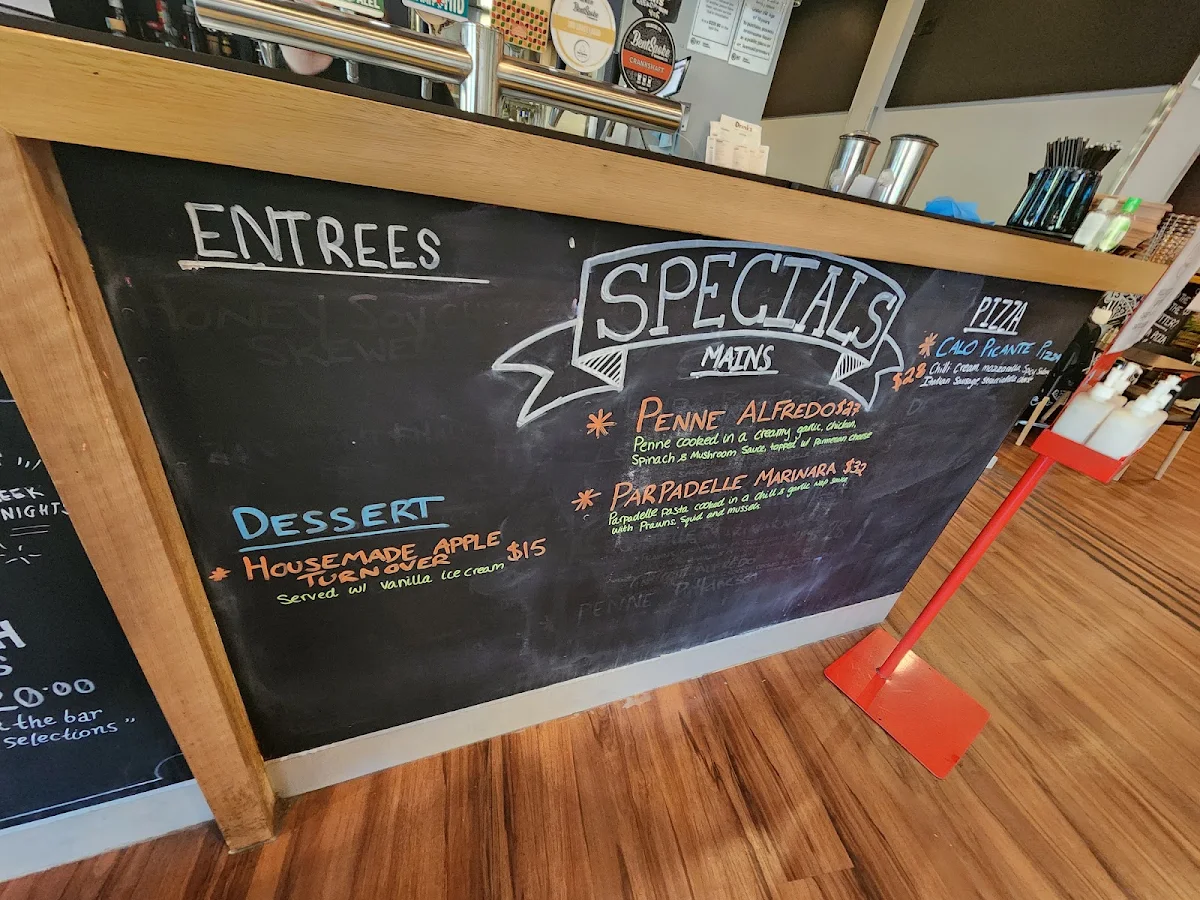 BentSpoke
BentSpoke
CRANKSHAFT
Drinks
ENTREES
SPECIALS
MAINS
* PENNE ALFREDO $27
Penne cooked in a creamy, garlic, chicken,
Spinach & Mushroom Sauce, topped w/ Parmesan cheese
* PARPADELLE MARINARA $32
Parpadelle Pasta cooked in a chilli & garlic Nap sauce
with Prawns, Squid and mussels
PENNE
PIZZA
* CALO PICANTE PIZZA
$28 Chilli Cream, mozzarella, Spicy Salami
Italian Sausage,
DESSERT
* HOUSEMADE APPLE
TURNOVER $15
Served w/ vanilla ice cream
HONEY / Soy
EEK
NIGHTS
H
S
20.00
the bar
selections "